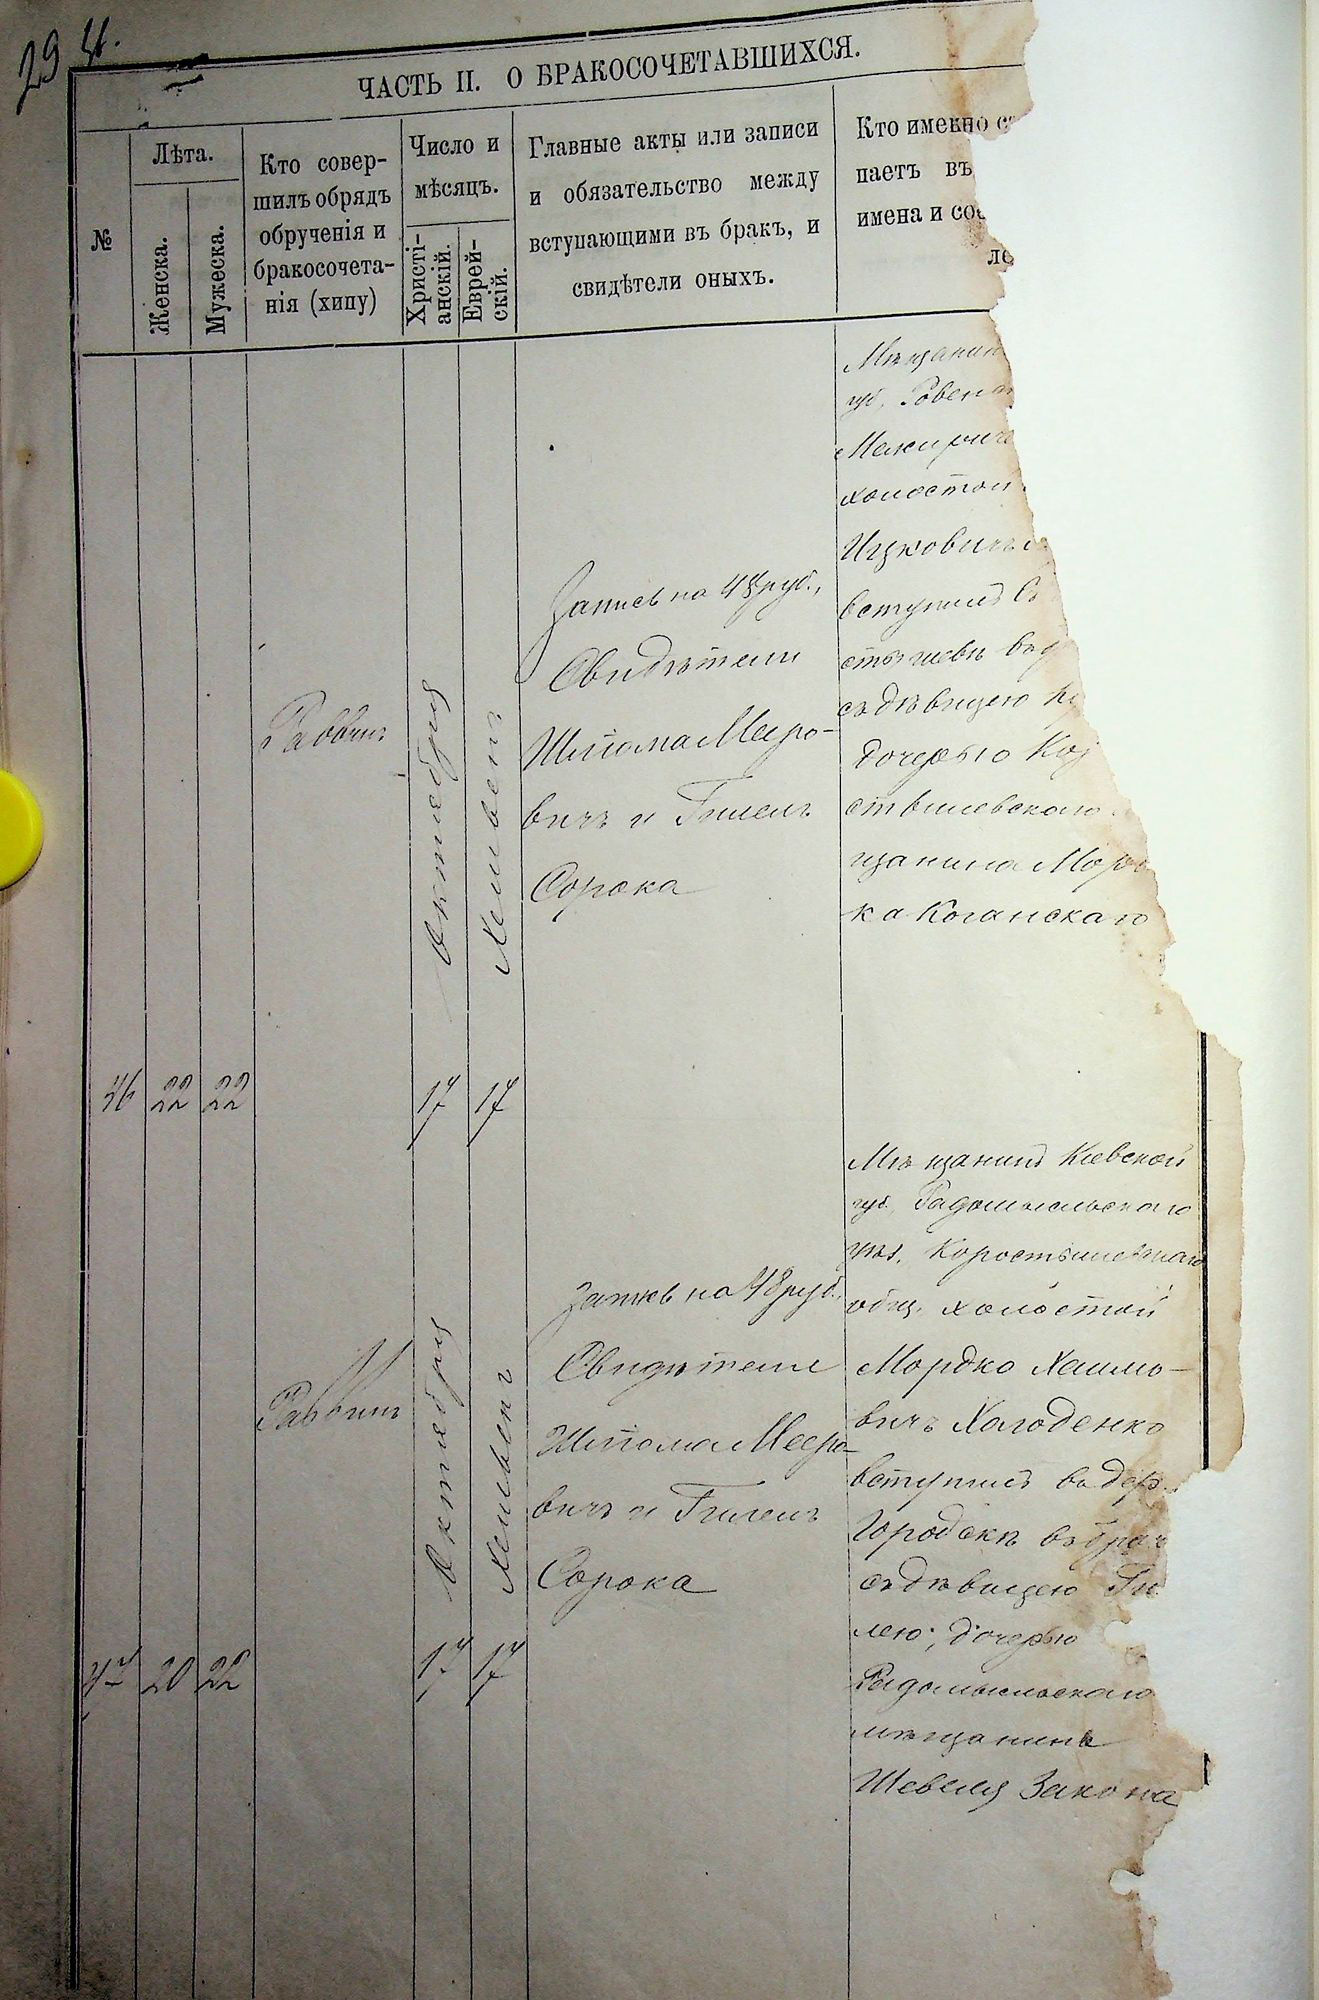 29
ЧАСТЬ II. О БРАКОСОЧЕТАВШИХСЯ.
№
Лѣта.
Женска.
Мужеска.
Кто совер-
шилъ обрядъ
обрученія и
бракосочета-
нія (хипу)
Число и
мѣсяцъ.
Христі-
анскій.
Еврей-
скій.
Главные акты или записи
и обязательство между
вступающими въ бракъ, и
свидѣтели оныхъ.
Кто именно
паетъ въ
имена и
46
22
22
Раввинъ
Октября
17
Хешвенъ
17
Запись на 48 руб.,
Свидѣтели
Шліома Меро-
вичъ и Гилель
Сорока
Мѣщанин
губ, Ровен
Межирич
холостой
Ицковичъ
вступилъ въ
стышевѣ въ
съ дѣвицею
дочерью Ко
стышевского
щанина Мор
ка Коганскаго
47
20
22
Раввинъ
Октября
17
Хешвенъ
17
Запись на 48 руб.,
Свидѣтели
Шліома Меро-
вичъ и Гилель
Сорока
Мѣщанинъ Кіевской
губ, Радомысльского
уѣз, Коростышевскаго
общ. холостой
Мордко Хаимо-
вичъ Холоденко
вступилъ въ дер.
Городскѣ въ брак
съ дѣвицею Ги
лею, дочерью
Радомысльского
мѣщанина
Шевеля Закона